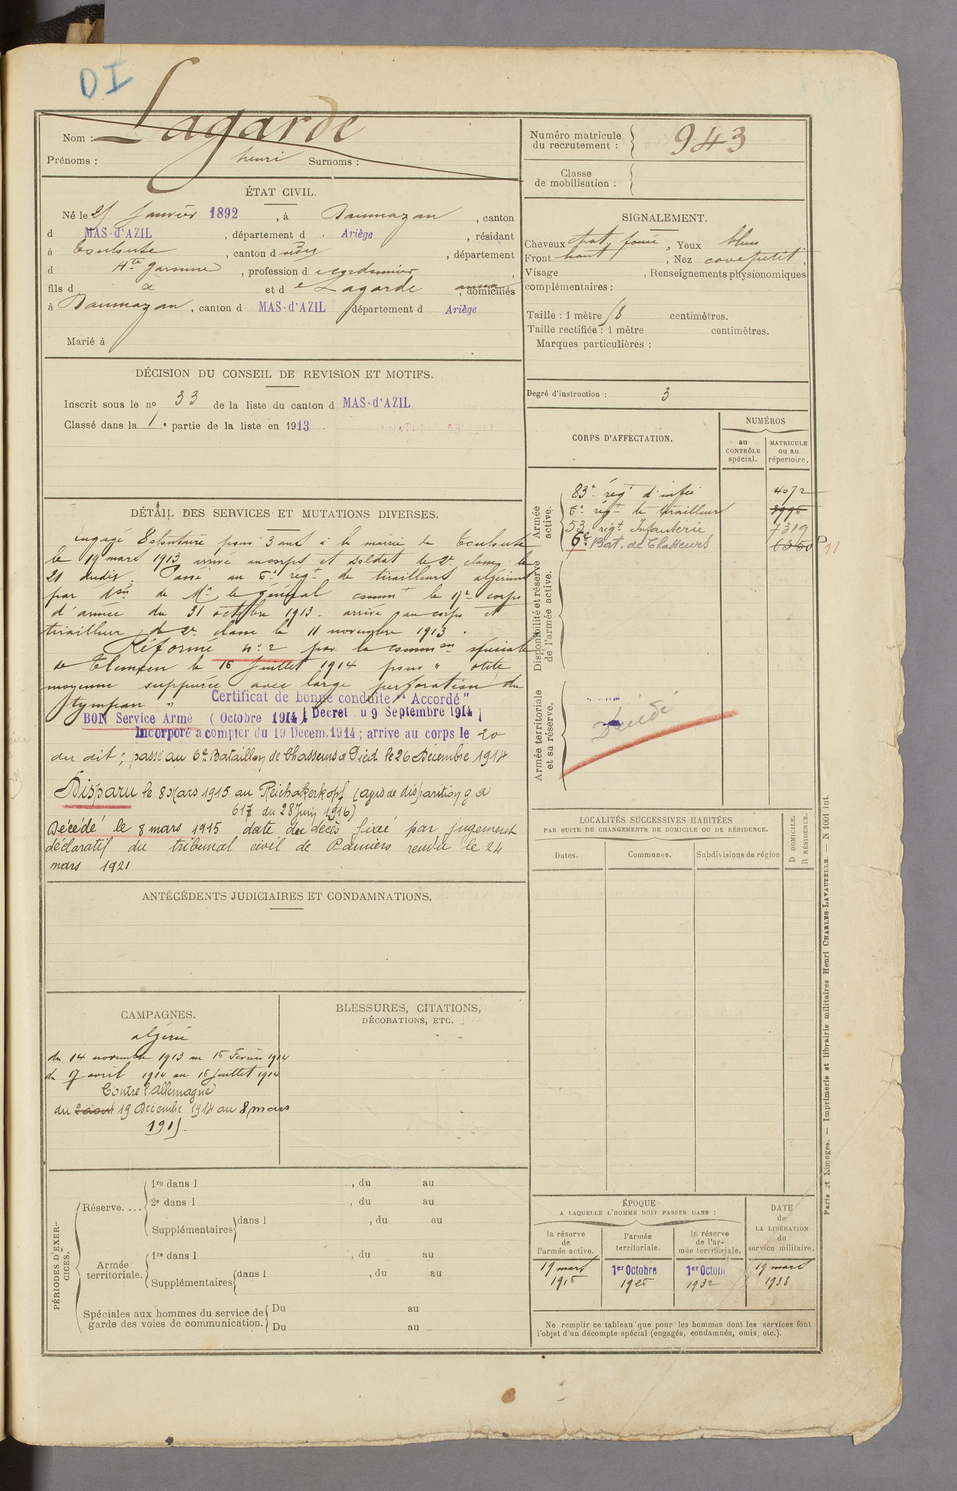 DI
Nom : Lagarde
Prénoms : henri Surnoms :
Numéro matricule du recrutement : 943
Classe de mobilisation :
ÉTAT CIVIL.
Né le janvier 1892, à Daumazan, canton
d MAS-d'AZIL, département d Ariège, résidant
à Toulouse, canton d , département
d Hte Garonne, profession d cordonnier,
fils d et d Lagarde anna, domiciliés
à Daumazan, canton d MAS-d'AZIL département d Ariège
Marié à
SIGNALEMENT.
Cheveux foncé, Yeux bleus
Front haut, Nez cave petit,
Visage , Renseignements physionomiques
complémentaires :
Taille : 1 mètre 58 centimètres.
Taille rectifiée : 1 mètre centimètres.
Marques particulières :
Degré d'instruction : 3
DÉCISION DU CONSEIL DE REVISION ET MOTIFS.
Inscrit sous le no 33 de la liste du canton d MAS-d'AZIL
Classé dans la 1 e partie de la liste en 1913.
DÉTAIL DES SERVICES ET MUTATIONS DIVERSES.
engagé Volontaire pour 3 ans à la mairie de Toulouse
le 19 mars 1913 arrivé au corps et soldat de 2e classe le
21 dudit. Passé au 6e régt de tirailleurs algériens
par don de Mr le général commt le 17e corps
d'armée du 31 octobre 1913. arrivé au corps et
tirailleur de 2e classe le 11 novembre 1913.
Réformé no 2 par la common spéciale
de Tlemcen le 16 juillet 1914 pour "otite
moyenne suppurée avec large perforation du
tympan" Certificat de bonne conduite "Accordé"
BON Service Armé (Octobre 1914) Décret du 9 Septembre 1914
Incorporé à compter du 19 Décem. 1914 ; arrivé au corps le 20
du dit ; passé au 6e Bataillon de Chasseurs à Pied le 26 Décembre 1914
Disparu le 8 Mars 1915 au Reichakerkopf (avis de disparition g. a
617 du 28 Juin 1916)
Décédé le 8 mars 1915 date du décès fixée par jugement
déclaratif du tribunal civil de Pamiers rendu le 24
mars 1921
CORPS D'AFFECTATION.
NUMÉROS
au CONTRÔLE spécial.
MATRICULE ou au répertoire.
Armée active.
83e régt d'infie 4072
6e régt de tirailleurs
53 régt Infanterie 7319
6e Bat. de Chasseurs
Disponibilité et réserve de l'armée active.
Armée territoriale et sa réserve.
Décédé
LOCALITÉS SUCCESSIVES HABITÉES
PAR SUITE DE CHANGEMENTS DE DOMICILE OU DE RÉSIDENCE.
Dates. Communes. Subdivisions de région
D DOMICILE. R RÉSIDENCE.
ANTÉCÉDENTS JUDICIAIRES ET CONDAMNATIONS.
CAMPAGNES.
algérie
du 14 novembre 1913 au 15 Février 1914
du 17 avril 1914 au 16 juillet 1914
Contre l'allemagne
du 2 aout 19 Décembre 1914 au 8 mars
1915.
BLESSURES, CITATIONS,
DÉCORATIONS, ETC.
PÉRIODES D'EXERCICES.
Réserve....
1re dans l , du au
2e dans l , du au
Supplémentaires dans l , du au
Armée territoriale.
1re dans l , du au
Supplémentaires dans l , du au
Spéciales aux hommes du service de garde des voies de communication.
Du au
Du au
ÉPOQUE
A LAQUELLE L'HOMME DOIT PASSER DANS :
la réserve de l'armée active.
l'armée territoriale.
la réserve de l'armée territoriale.
DATE de LA LIBÉRATION du service militaire.
19 mars 1916
1er Octobre 1926
1er Octobre 1932
19 mars 1938
Ne remplir ce tableau que pour les hommes dont les services font
l'objet d'un décompte spécial (engagés, condamnés, omis, etc.).
Paris et Limoges. — Imprimerie et librairie militaires Henri CHARLES-LAVAUZELLE. — N 1001 int.